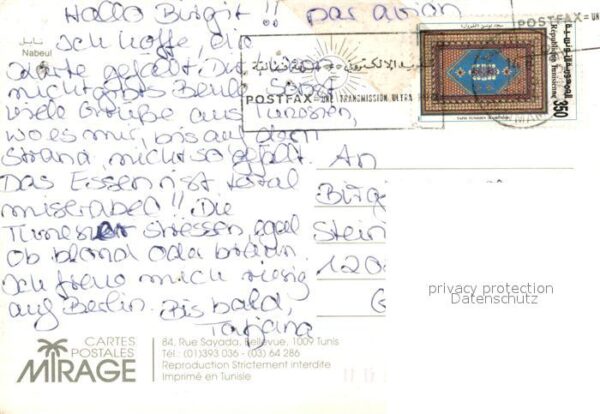 Hallo Birgit!! par avion
نابل
Nabeul
Ich hoffe, die
Karte gefällt. Die
nicht
viele Grüße aus Tunesien,
wo es mir, bis auf dem
Strand, nicht so gefällt.
Das Essen ist total
miserabel!! Die
Tuneser stressen, egal
ob blond oda braun.
Ich freue mich riesig
auf Berlin. Bis bald,
Tatjana
CARTES
POSTALES
MIRAGE
84, Rue Sayada, Bellevue, 1009 Tunis
Tél.: (01)393 036 - (03) 64 286
Reproduction Strictement interdite
Imprimé en Tunisie
POSTFAX = UNE
البريد الإلكتروني
POSTFAX = UNE TRANSMISSION ULTRA
République Tunisienne
350
An
Birg
Stein
120
privacy protection
Datenschutz